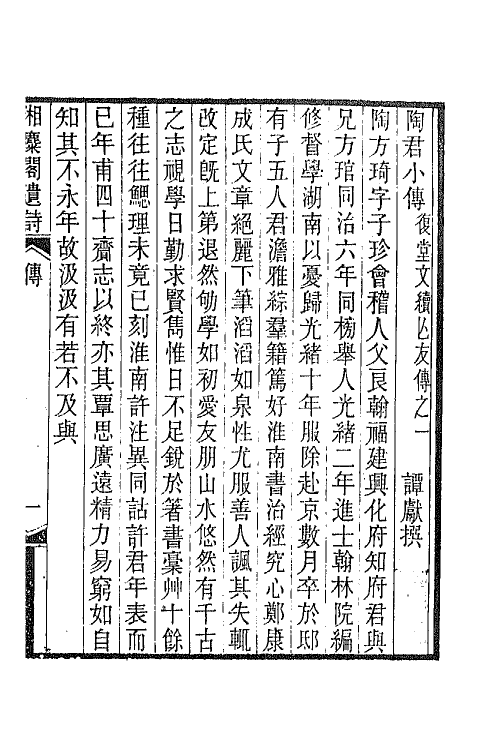 陶君小傳復堂文續亾友傳之一　譚獻撰
陶方琦字子珍會稽人父良翰福建興化府知府君與
兄方琯同治六年同榜舉人光緒二年進士翰林院編
修督學湖南以憂歸光緒十年服除赴京數月卒於邸
有子五人君澹雅綜羣籍篤好淮南書治經究心鄭康
成氏文章絕麗下筆滔滔如泉性尤服善人諷其失輒
改定旣上第退然劬學如初愛友朋山水悠然有千古
之志視學日勤求賢雋惟日不足銳於箸書稾艸十餘
種往往鰓理未竟已刻淮南許注異同詁許君年表而
已年甫四十齎志以終亦其覃思廣遠精力易窮如自
知其不永年故汲汲有若不及與
湘麋閣遺詩　傳　一